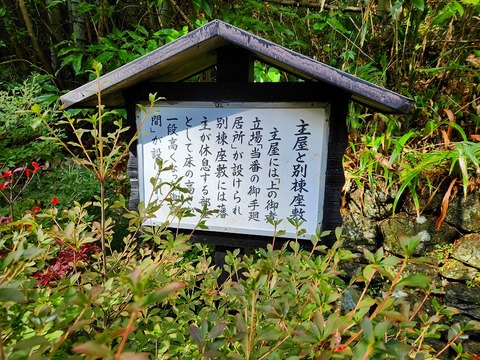 主屋と別棟座敷
主屋には上の御者
立場「当番の御手廻
居所」が設けられ
別棟座敷には藩
主が休息する部
として床の高
一段高く
間」が設